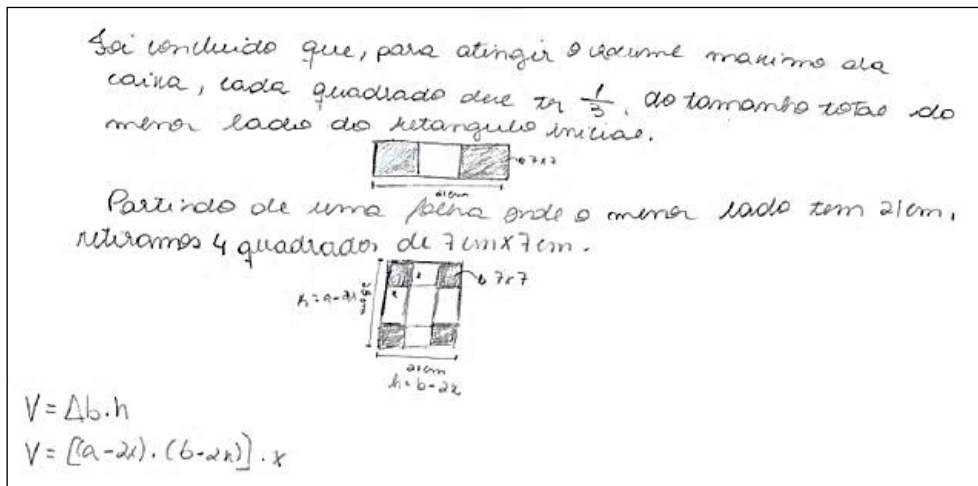 Foi concluido que, para atingir o volume maximo da
caixa, cada quadrado deve ter 1/3 do tamanho total do
menor lado do retangulo inicial.
7x7
21cm
Partindo de uma folha onde o menor lado tem 21cm,
retiramos 4 quadrados de 7cmx7cm.
7x7
h=a-2x
21cm
h=b-2x
V=Ab.h
V=[(a-2x).(b-2x)].x